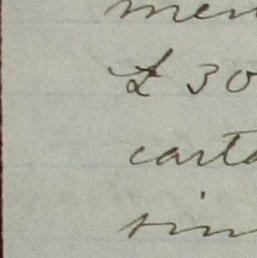 men
£ 30
carta
sin